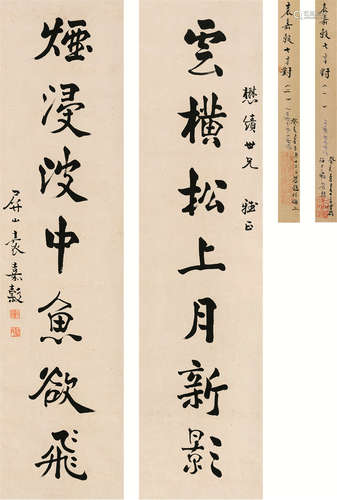 雲橫松上月新影
懋績世兄 雅正
煙浸波中魚欲飛
屏山袁嘉穀
袁嘉穀七言對(一)
袁嘉穀七言對(二)